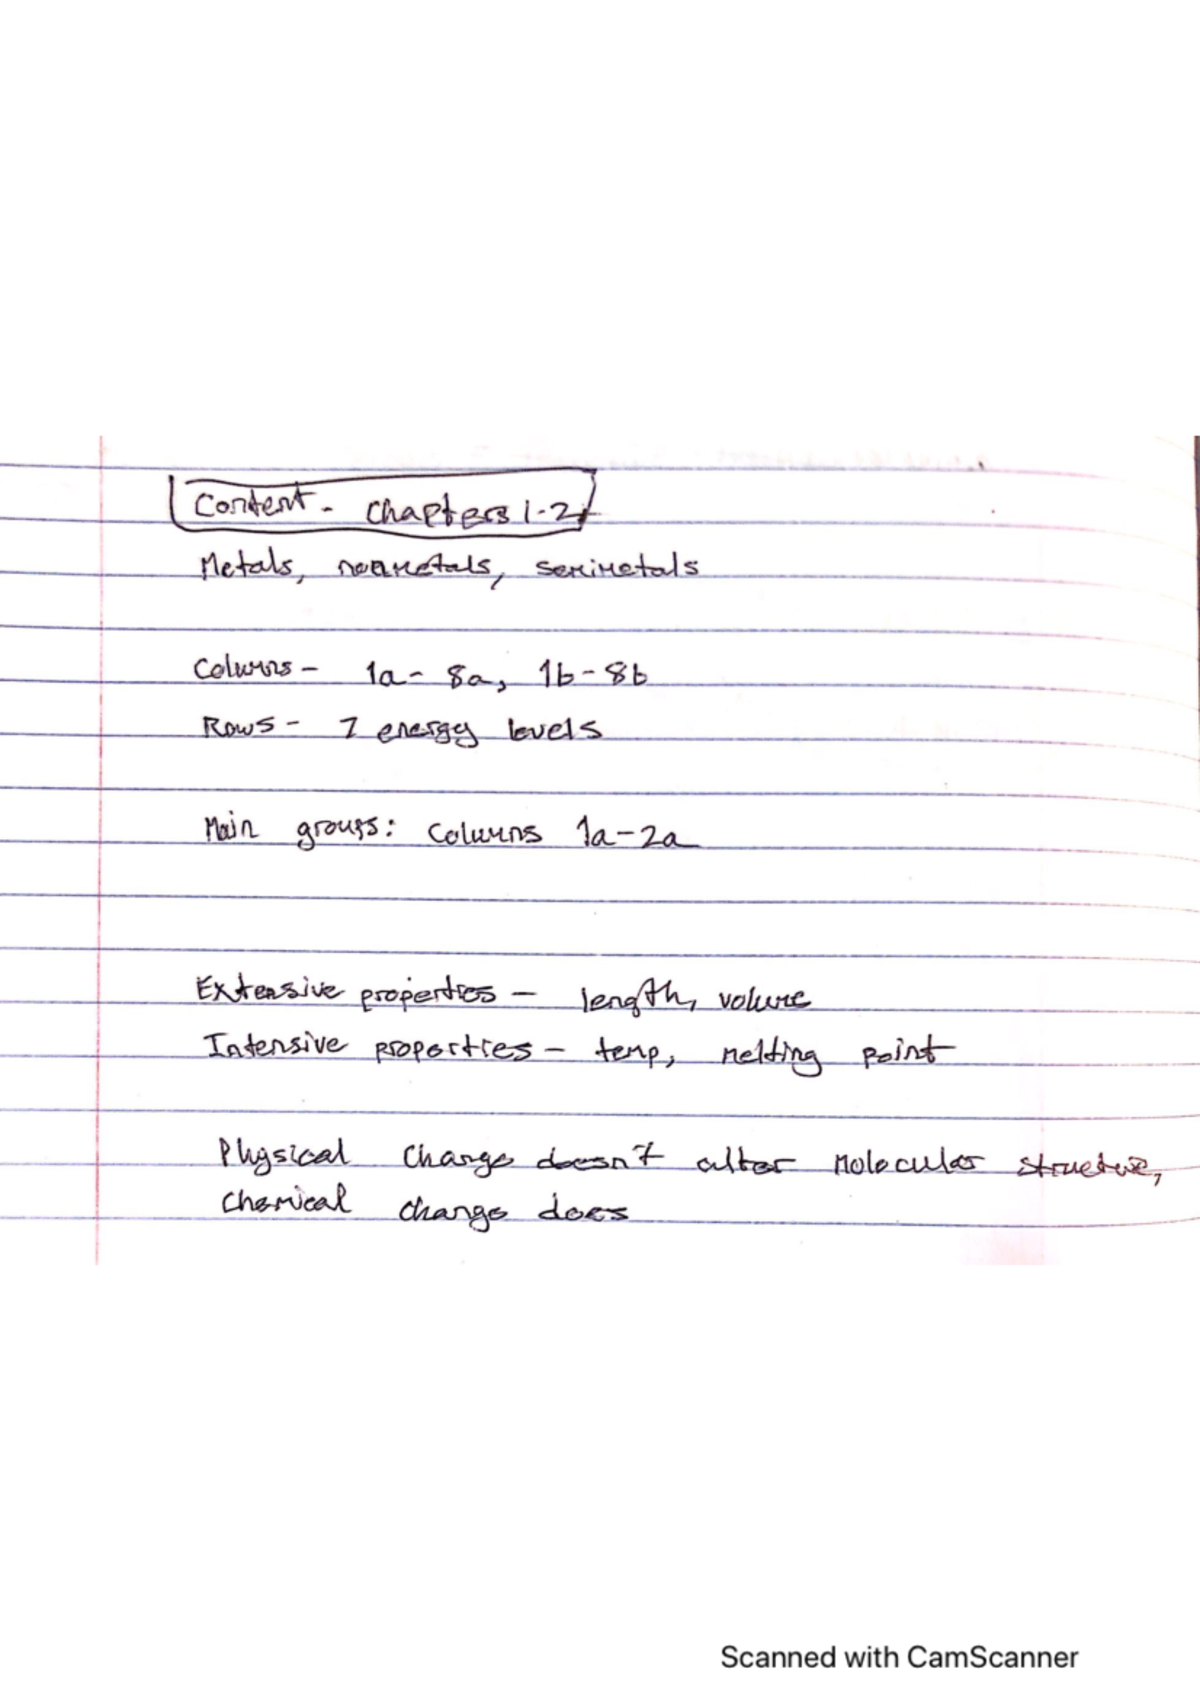 Content - Chapters 1-2
Metals, nonmetals, semimetals
Columns - 1a - 8a, 1b - 8b
Rows - 7 energy levels
Main groups: Columns 1a - 2a
Extensive properties - length, volume
Intensive properties - temp, melting point
Physical change doesn't alter molecular structure,
Chemical change does
Scanned with CamScanner